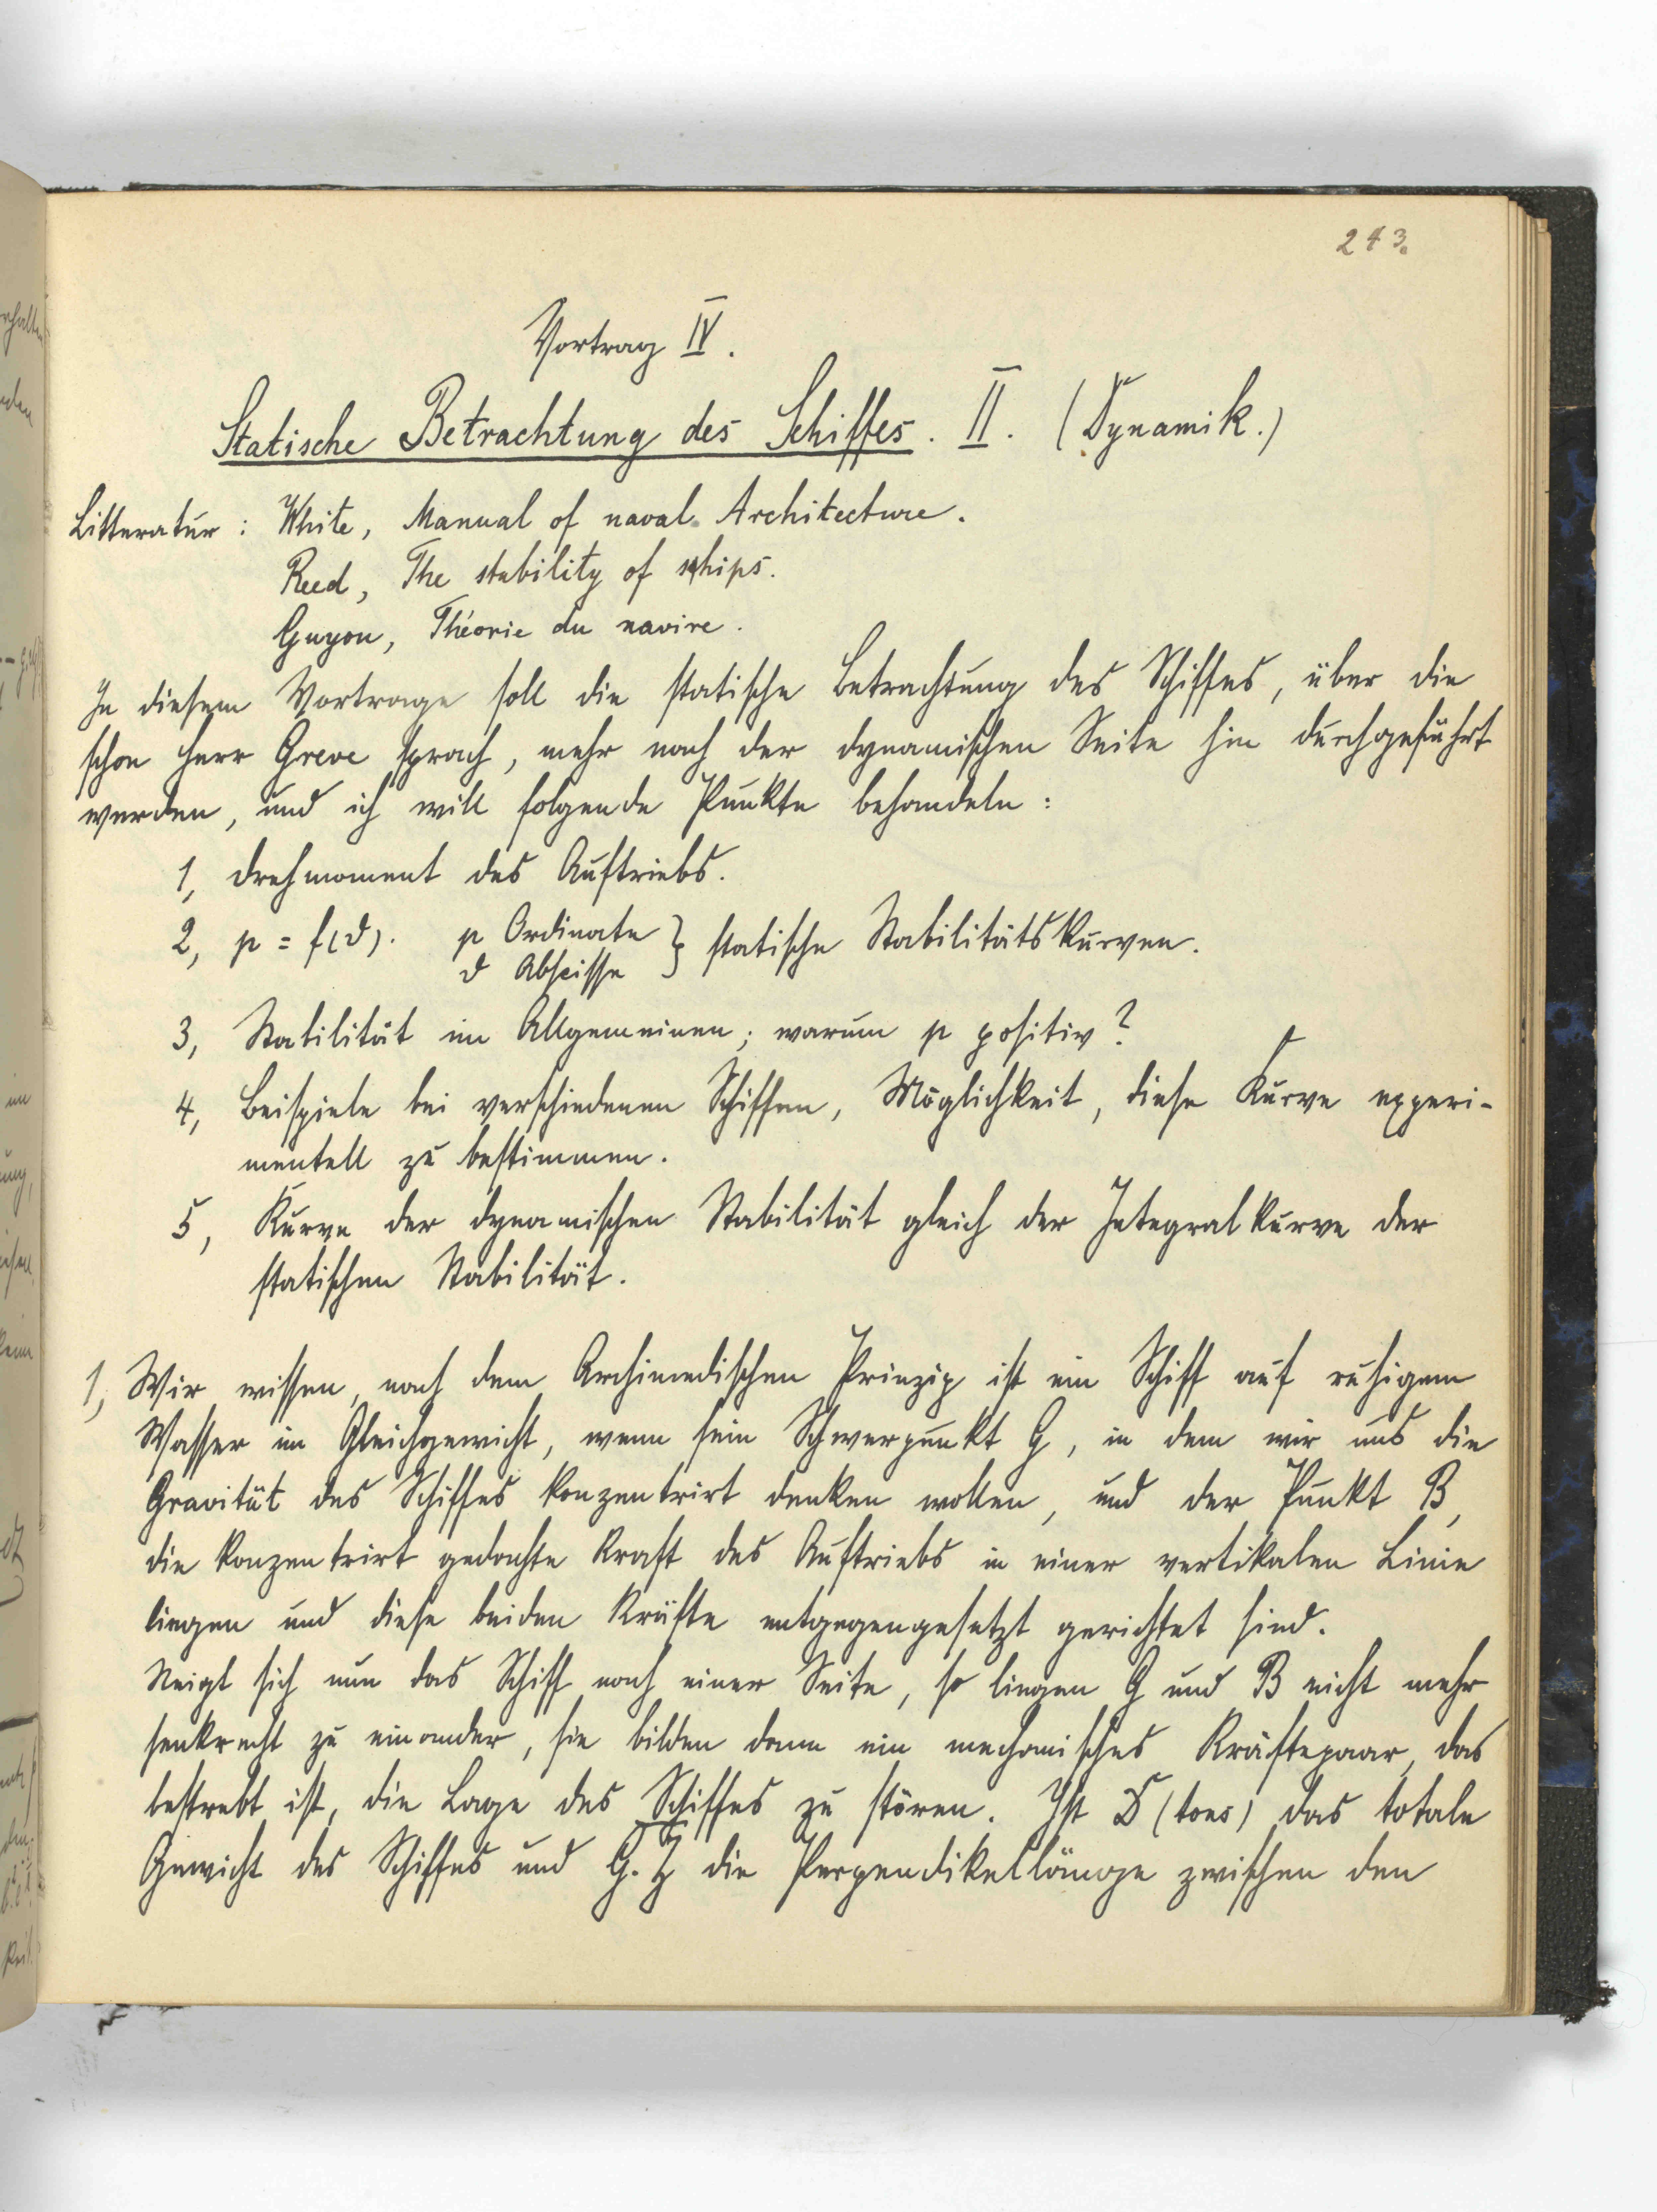 243.
Vortrag IV.
Statische Betrachtung des Schiffes. II. (Dynamik.)
Litteratur: White, Manual of naval Architecture.
Reed, The stability of ships.
Guyou, Théorie du navire.
In diesem Vortrage soll die statische Betrachtung des Schiffes, über die
schon Herr Greve sprach, mehr nach der dynamischen Seite hin durchgeführt
werden, und ich will folgende Punkte behandeln:
1, Drehmoment des Auftriebs.
2, p = f(ϑ). p Ordinate } statische Stabilitätskurven.
ϑ Abscisse
3, Stabilität im Allgemeinen; warum p positiv?
4, Beispiele bei verschiedenen Schiffen, Möglichkeit, diese Kurve experi-
mentell zu bestimmen.
5, Kurve der dynamischen Stabilität gleich der Integralkurve der
statischen Stabilität.
1, Wir wissen, nach dem Archimedischen Prinzip ist ein Schiff auf ruhigem
Wasser im Gleichgewicht, wenn sein Schwerpunkt G, in dem wir uns die
Gravität des Schiffes konzentrirt denken wollen, und der Punkt B,
die konzentrirt gedachte Kraft des Auftriebs in einer vertikalen Linie
liegen und diese beiden Kräfte entgegengesetzt gerichtet sind.
Neigt sich nun das Schiff nach einer Seite, so liegen G und B nicht mehr
senkrecht zu einander, sie bilden dann ein mechanisches Kräftepaar, das
bestrebt ist, die Lage des Schiffes zu stören. Ist D (tons) das totale
Gewicht des Schiffes und G.Z die Perpendikellänge zwischen den